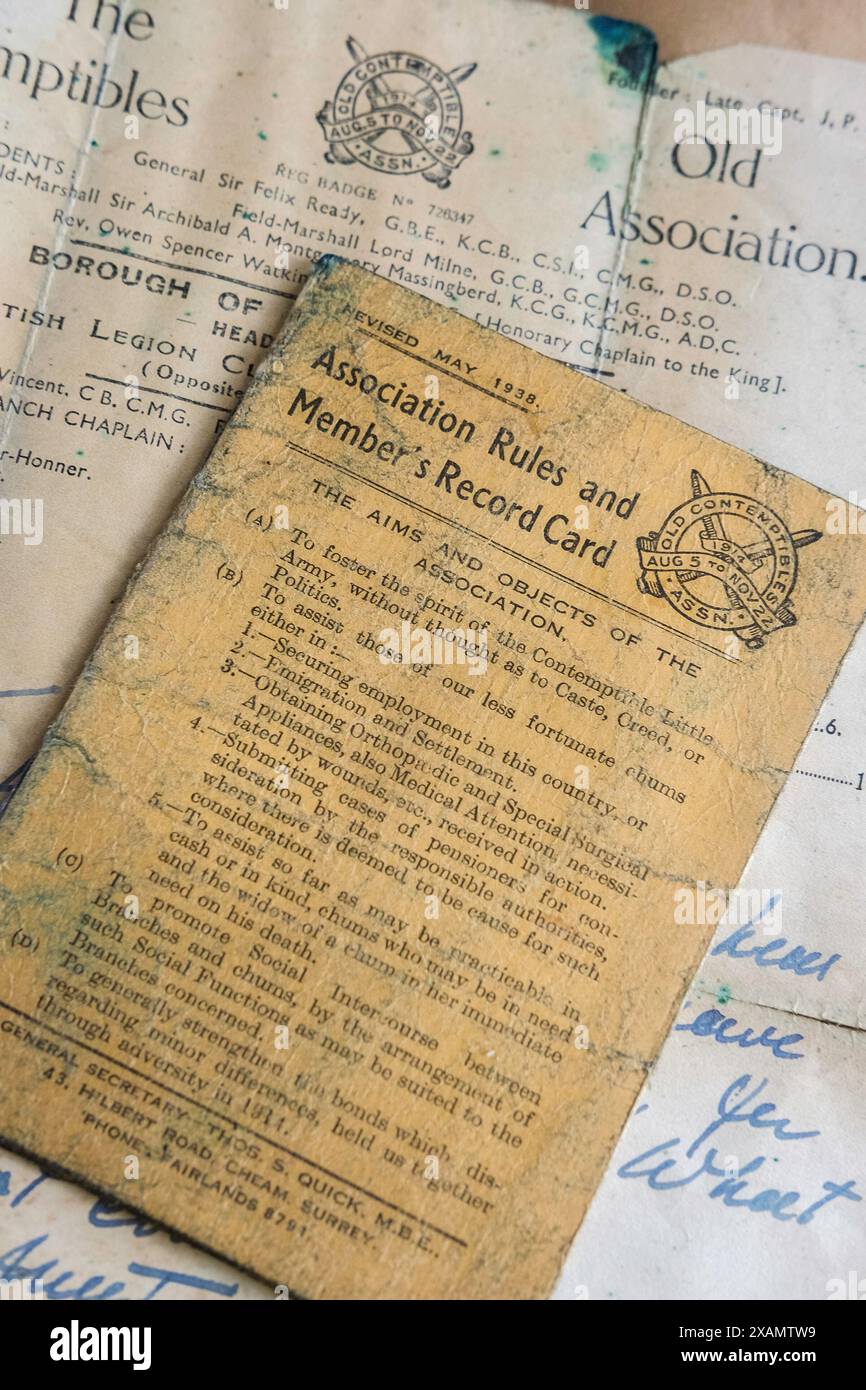 The
mptibles
OLD CONTEMPTIBLES
1914
AUG. 5 TO NOV. 22
ASSN.
REG BADGE Nº 726347
Late Capt, J. P.
Old
Association.
DENTS :
General Sir Felix Ready, G.B.E., K.C.B., C.S.I., C.M.G., D.S.O.
Field-Marshall Lord Milne, G.C.B., G.C.M.G., D.S.O.
ld-Marshall Sir Archibald A. Montgomery Massingberd, K.C.G., K.C.M.G., A.D.C.
Rev. Owen Spencer Watkin [Honorary Chaplain to the King].
BOROUGH OF
HEAD
TISH LEGION CL
(Opposite
Vincent, C B. C.M.G.
ANCH CHAPLAIN :
r-Honner.
REVISED MAY 1938.
Association Rules and
Member's Record Card
OLD CONTEMPTIBLES
1914
AUG 5 TO NOV. 22
ASSN.
THE AIMS AND OBJECTS OF THE
ASSOCIATION.
(A) To foster the spirit of the Contemptible Little
Army, without thought as to Caste, Creed, or
Politics.
(B) To assist those of our less fortunate chums
either in :—
1.—Securing employment in this country, or
2.—Emigration and Settlement.
3.—Obtaining Orthopædic and Special Surgical
Appliances, also Medical Attention, necessi-
tated by wounds, etc., received in action.
4.—Submitting cases of pensioners for con-
sideration by the responsible authorities,
where there is deemed to be cause for such
consideration.
5.—To assist so far as may be practicable in
cash or in kind, chums who may be in need
and the widow of a chum in her immediate
need on his death.
(C) To promote Social Intercourse between
Branches and chums, by the arrangement of
such Social Functions as may be suited to the
Branches concerned.
(D) To generally strengthen the bonds which, dis-
regarding minor differences, held us together
through adversity in 1914.
GENERAL SECRETARY—THOS. S. QUICK, M.B.E.,
43, HILBERT ROAD, CHEAM, SURREY.
'PHONE, FAIRLANDS 8791.
6.
1
What
alamy
Image ID: 2XAMTW9
www.alamy.com